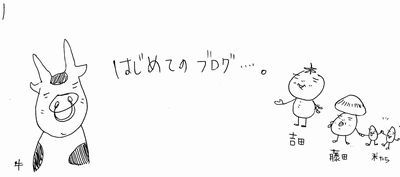 はじめてのブログ…。
米
牛
吉田
藤田
米たち